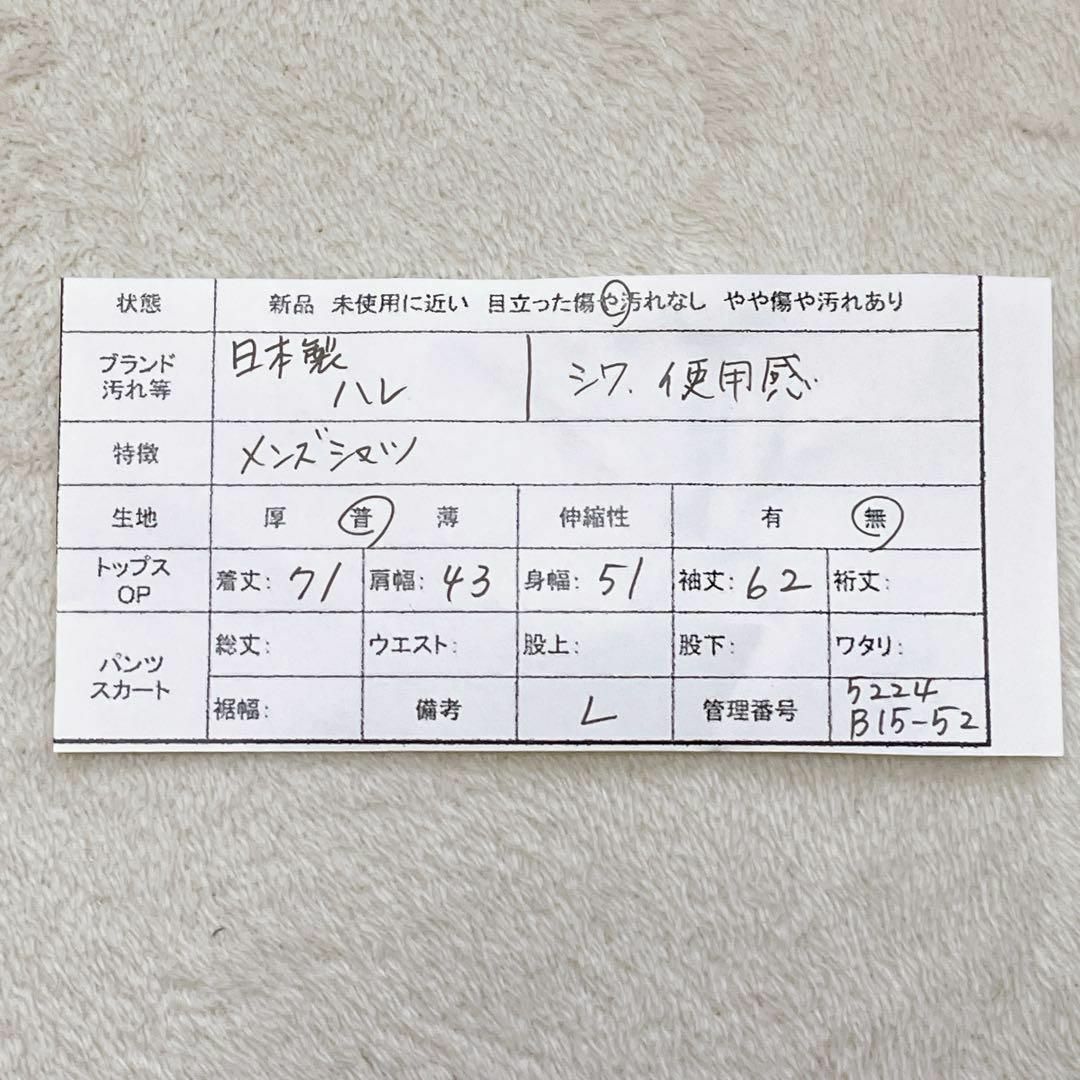 状態 新品 未使用に近い 目立った傷や汚れなし やや傷や汚れあり
ブランド 汚れ等 日本製 ハレ シワ、使用感
特徴 メンズシャツ
生地 厚 普 薄 伸縮性 有 無
トップス OP 着丈: 71 肩幅: 43 身幅: 51 袖丈: 62 裄丈:
パンツ スカート 総丈: ウエスト: 股上: 股下: ワタリ:
裾幅: 備考 L 管理番号 5224 B15-52